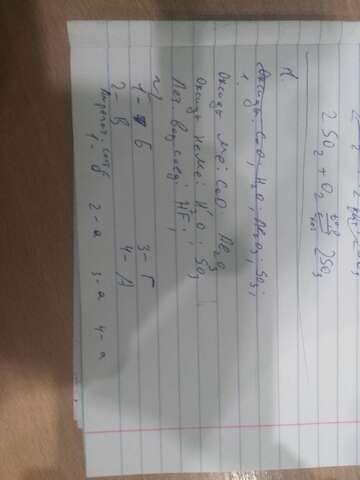 2SO₂ + O₂ ⇄ 2SO₃
1.
Оксиды: CaO; H₂O; Al₂O₃; SO₃;
Оксиды Me: CaO Al₂O₃
Оксиды неМе: H₂O; SO₃
Лет. вод. соед: HF;
1 - Б 3 - Г
2 - В 4 - А
1 - б 2 - а 3 - а 4 - а